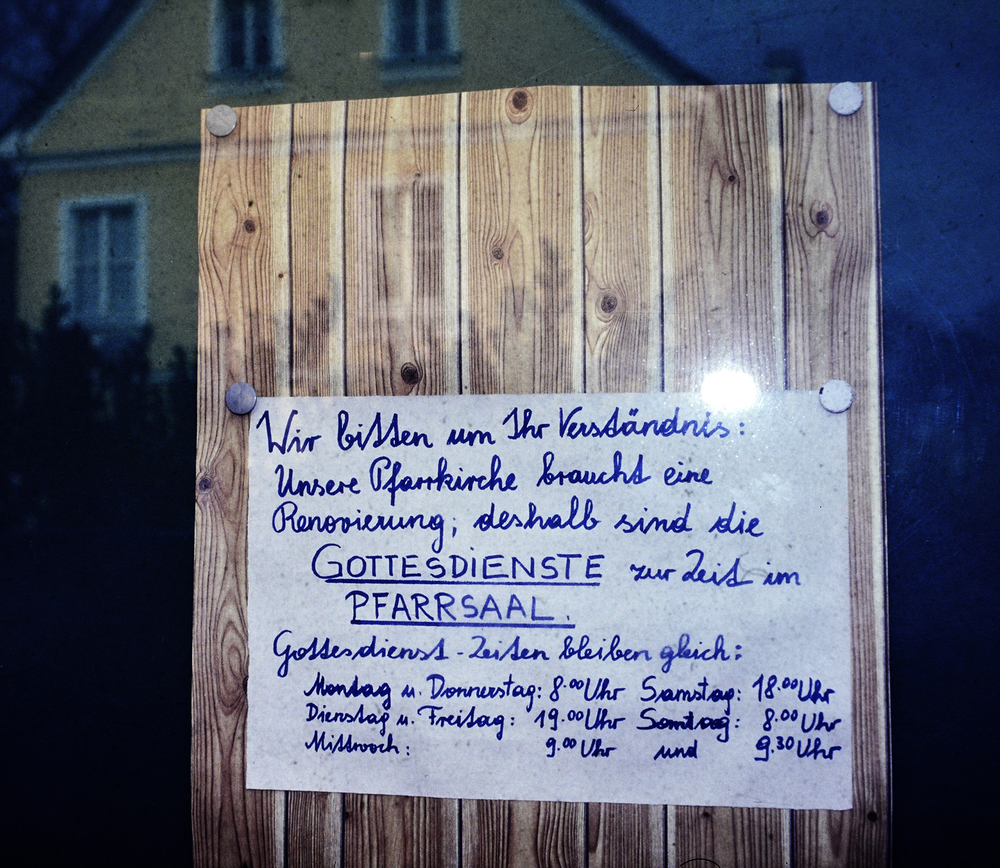 Wir bitten um Ihr Verständnis:
Unsere Pfarrkirche braucht eine
Renovierung, deshalb sind die
GOTTESDIENSTE zur Zeit im
PFARRSAAL.
Gottesdienst-Zeiten bleiben gleich:
Montag u. Donnerstag: 8.00 Uhr Samstag: 18.00 Uhr
Dienstag u. Freitag: 19.00 Uhr Sonntag: 8.00 Uhr
Mittwoch: 9.00 Uhr und 9.30 Uhr